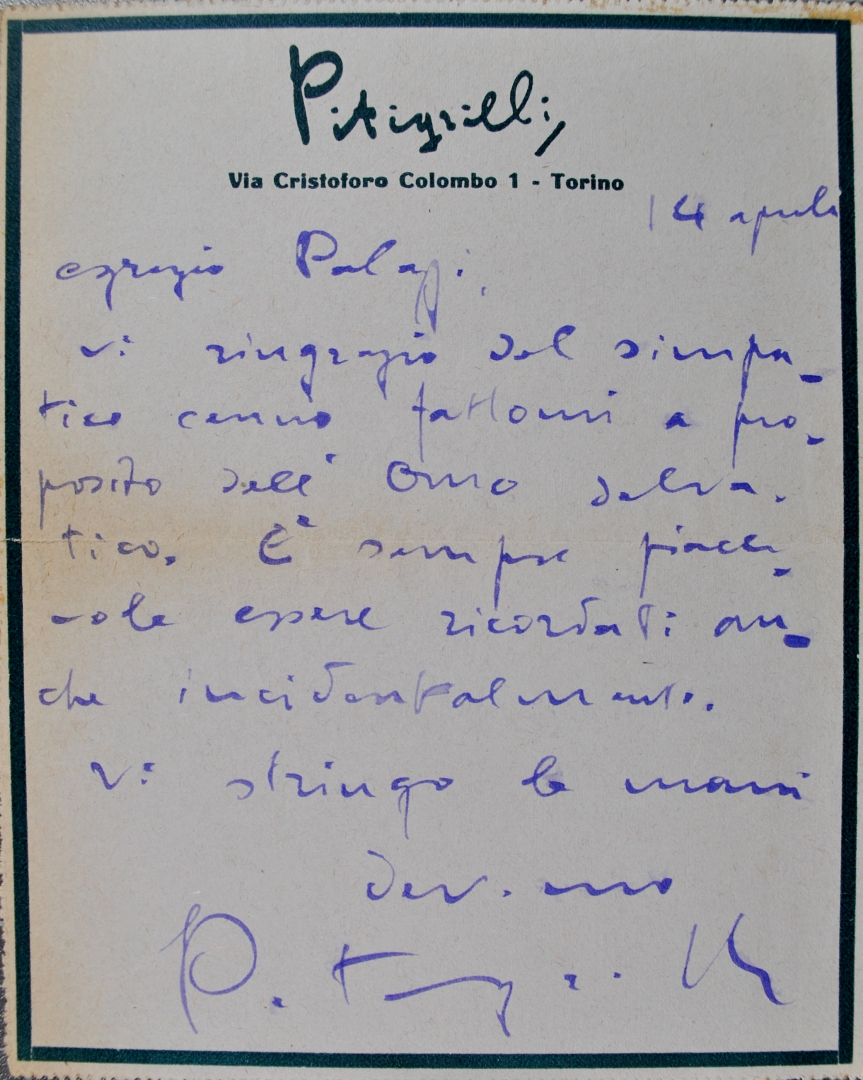 Pitigrilli
Via Cristoforo Colombo 1 - Torino
14 aprile
egregio Palazzi,
vi ringrazio del simpa-
tico cenno fattomi a pro-
posito dell' Omo salva-
tico. È sempre piace-
vole essere ricordati an-
che incidentalmente.
Vi stringo le mani
dev.mo
Pitigrilli